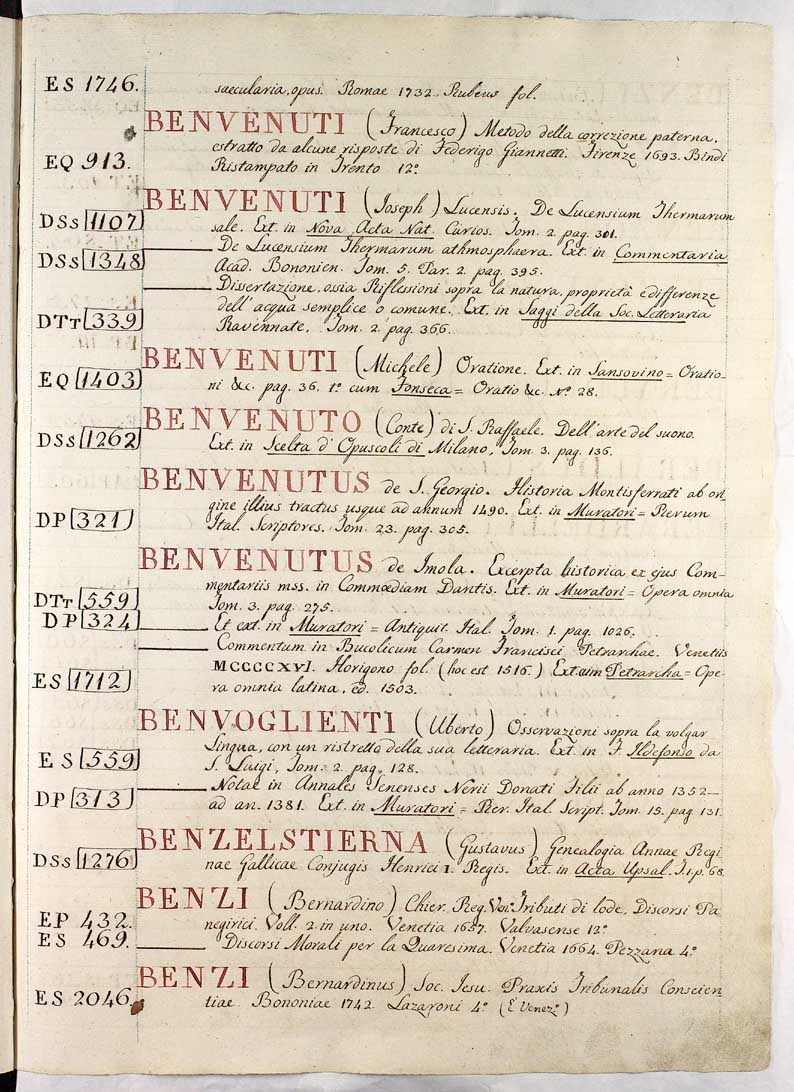 ES 1746. saecularia, opus. Romae 1732. Rubeus fol.
BENVENUTI (Francesco) Metodo della correzione paterna,
estratto da alcune risposte di Federigo Giannetti. Firenze 1693. Bindi
EQ 913. Ristampato in Trento 12°
BENVENUTI (Joseph) Lucensis. De Lucensium Thermarum
DSs 1107 sale. Ext. in Nova Acta Nat. Curios. Tom. 2. pag. 301.
De Lucensium Thermarum athmosphaera. Ext. in Commentaria
DSs 1348 Acad. Bononien. Tom. 5. Par. 2. pag. 395.
Dissertazione, ossia Riflessioni sopra la natura, proprietà e differenze
dell'acqua semplice o comune. Ext. in Saggi della Soc. Letteraria
DTt 339 Ravennate, Tom. 2. pag. 366.
BENVENUTI (Michele) Oratione. Ext. in Sansovino = Oratio-
EQ 1403 ni &c. pag. 36. t° cum Fonseca = Oratio &c. N° 28.
BENVENUTO (Conte) di S. Raffaele. Dell'arte del suono.
DSs 1262 Ext. in Scelta d'Opuscoli di Milano, Tom. 3. pag. 136.
BENVENUTUS de S. Georgio. Historia Montisferrati ab ori
gine illius tractus usque ad annum 1490. Ext. in Muratori = Rerum
DP 321 Ital. Scriptores. Tom. 23. pag. 305.
BENVENUTUS de Imola. Excerpta historica ex ejus Com-
mentariis mss. in Commœdiam Dantis. Ext. in Muratori = Opera omnia
DTt 559 Tom. 3. pag. 275.
DP 324 Et ext. in Muratori = Antiquit. Ital. Tom. 1. pag. 1026.
Commentum in Bucolicum Carmen Francisci Petrarchae. Venetiis
MCCCCXVI. Horigono fol. (hoc est 1516.) Ext cum Petrarcha = Ope-
ES 1712 ra omnia latina, ed. 1503.
BENVOGLIENTI (Uberto) Osservazioni sopra la volgar
Lingua, con un ristretto della sua letteraria. Ext. in F. Ildefonso da
ES 559 S. Luigi, Tom. 2. pag. 128.
Notae in Annales Senenses Nerii Donati Filii ab anno 1352-
DP 313 ad an. 1381. Ext. in Muratori = Rer. Ital. Script. Tom. 15. pag. 131.
BENZELSTIERNA (Gustavus) Genealogia Annae Regi
DSs 1276 nae Gallicae Conjugis Henrici I. Regis. Ext. in Acta Upsal. T. 1 p. 68.
BENZI (Bernardino) Chier. Reg. Tributi di lode, Discorsi Pa
EP 432. negirici. Voll. 2. in uno. Venetia 1657. Valvasense 12°
ES 469. Discorsi Morali per la Quaresima. Venetia 1664. Pezzana 4°
BENZI (Bernardinus) Soc. Jesu. Praxis Tribunalis Conscien
ES 2046. tiae. Bononiae 1742. Lazaroni 4° (E Venez°)